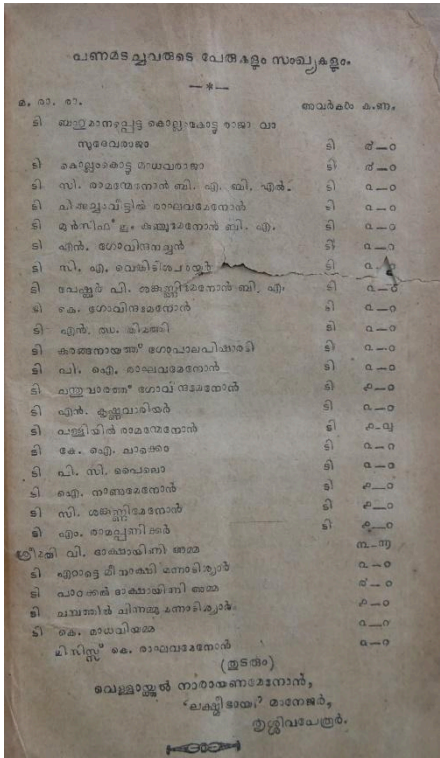 പണമടച്ചവരുടെ പേരുകളും സംഖ്യകളും.
മ. രാ. രാ. അവർകൾ ക. ണ.
ടി ബഹുമാനപ്പെട്ട കൊല്ലങ്കോട്ടു രാജാ വാ
സുദേവരാജാ ടി ൪—൦
ടി കൊല്ലംകൊട്ടു മാധവരാജാ ടി ൪—൦
ടി സി. രാമന്മേനോൻ ബി. എ. ബി, എൽ. ടി ൨—൦
ടി രാഘവമേനോൻ ടി ൨—൦
ടി മുൻസിഫ് ഇം കുഞ്ചുമേനോൻ ബി. എ. ടി ൨—൦
ടി എൻ. ഗോവിന്ദനച്ചൻ ടി ൨—൦
ടി സി. എ. വെങ്കിടീശ്വരയ്യർ ടി ൨—൦
ടി പി. ശങ്കുണ്ണിമേനോൻ ബി. എ. ടി ൨—൦
ടി കെ. ഗോവിന്ദമേനോൻ ടി ൨—൦
ടി എൻ. ടി ൨—൦
ടി ഗോപാലപിഷാരടി ടി ൨—൦
ടി പി. ഐ. രാഘവമേനോൻ ടി ൨—൦
ടി ഗോവിന്ദമേനോൻ ടി ൧—൦
ടി എൻ. കൃഷ്ണവാരിയർ ടി ൨—൦
ടി പള്ളിയിൽ രാമന്മേനോൻ ടി
ടി കേ. ഐ. ചാക്കൊ ടി ൨—൦
ടി പി. സി. പൈലൊ ടി ൨—൦
ടി ഐ. നാണുമേനോൻ ടി ൧—൦
ടി സി. ശങ്കുണ്ണിമേനോൻ ടി ൧—൦
ടി എം. രാമപ്പണിക്കർ ടി ൧—൦
ശ്രീമതി വി. ദാക്ഷായിണി അമ്മ
ടി മീനാക്ഷി മന്നാടിശ്യാർ ൨—൦
ടി പാറക്കൽ ദാക്ഷായിണി അമ്മ ൪—൦
ടി ചമ്പത്തിൽ ചിന്നമ്മു മന്നാടിശ്യാർ ൧—൦
ടി കെ. മാധവിയമ്മ ൨—൦
മിസിസ്സ് കെ. രാഘവമേനോൻ ൨—൦
(തുടരും)
വെള്ളായ്ക്കൽ നാരായണമേനോൻ,
'ലക്ഷ്മീഭായി' മാനേജർ,
തൃശ്ശിവപേരൂർ.